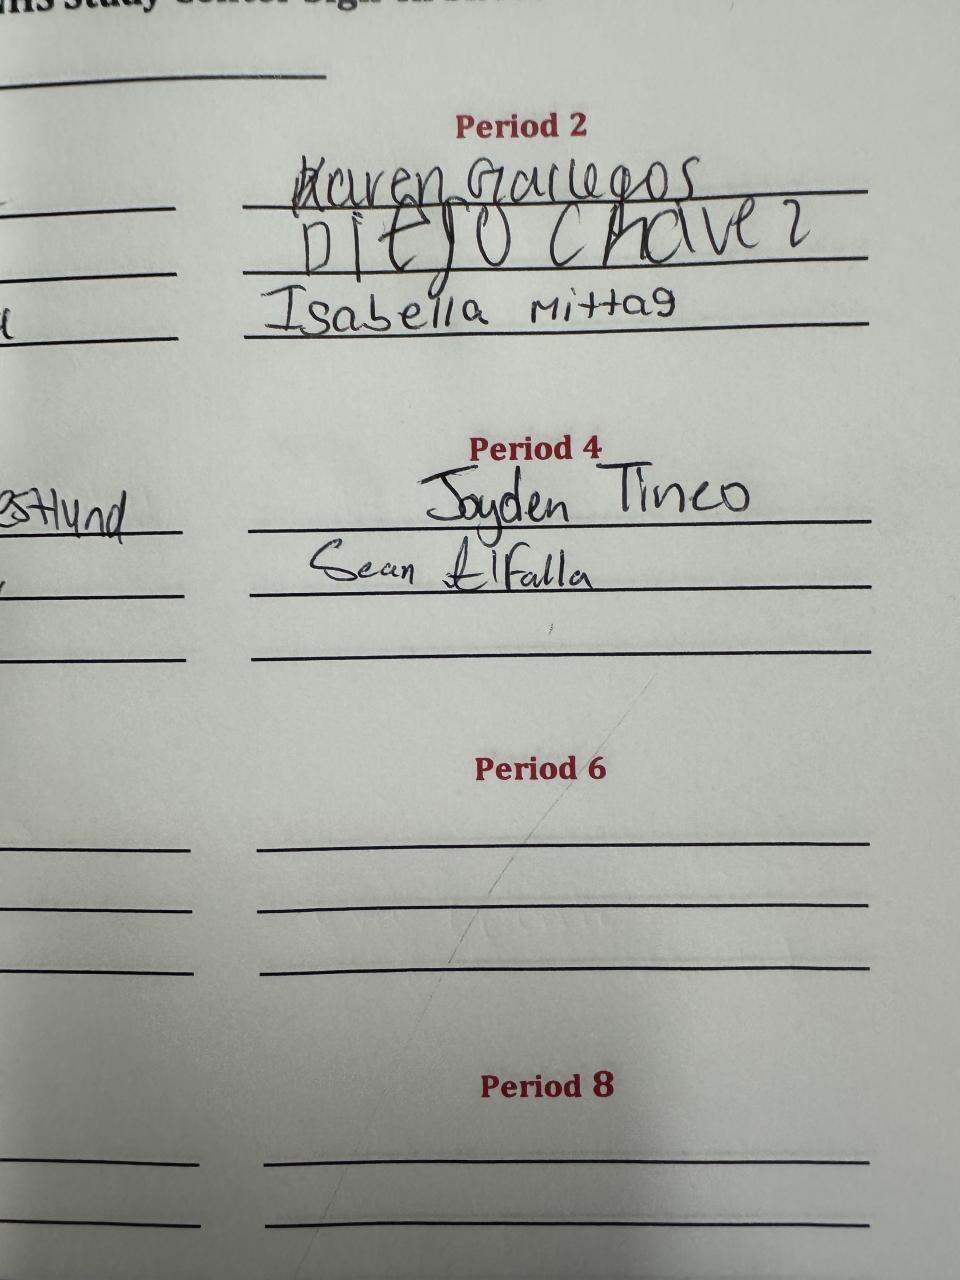 Study Center Sign-In
Period 2
Karen Gallegos
Diego Chavez
Isabella Mittag
Period 4
Jayden Tineo
Sean Elfalla
Period 6
Period 8